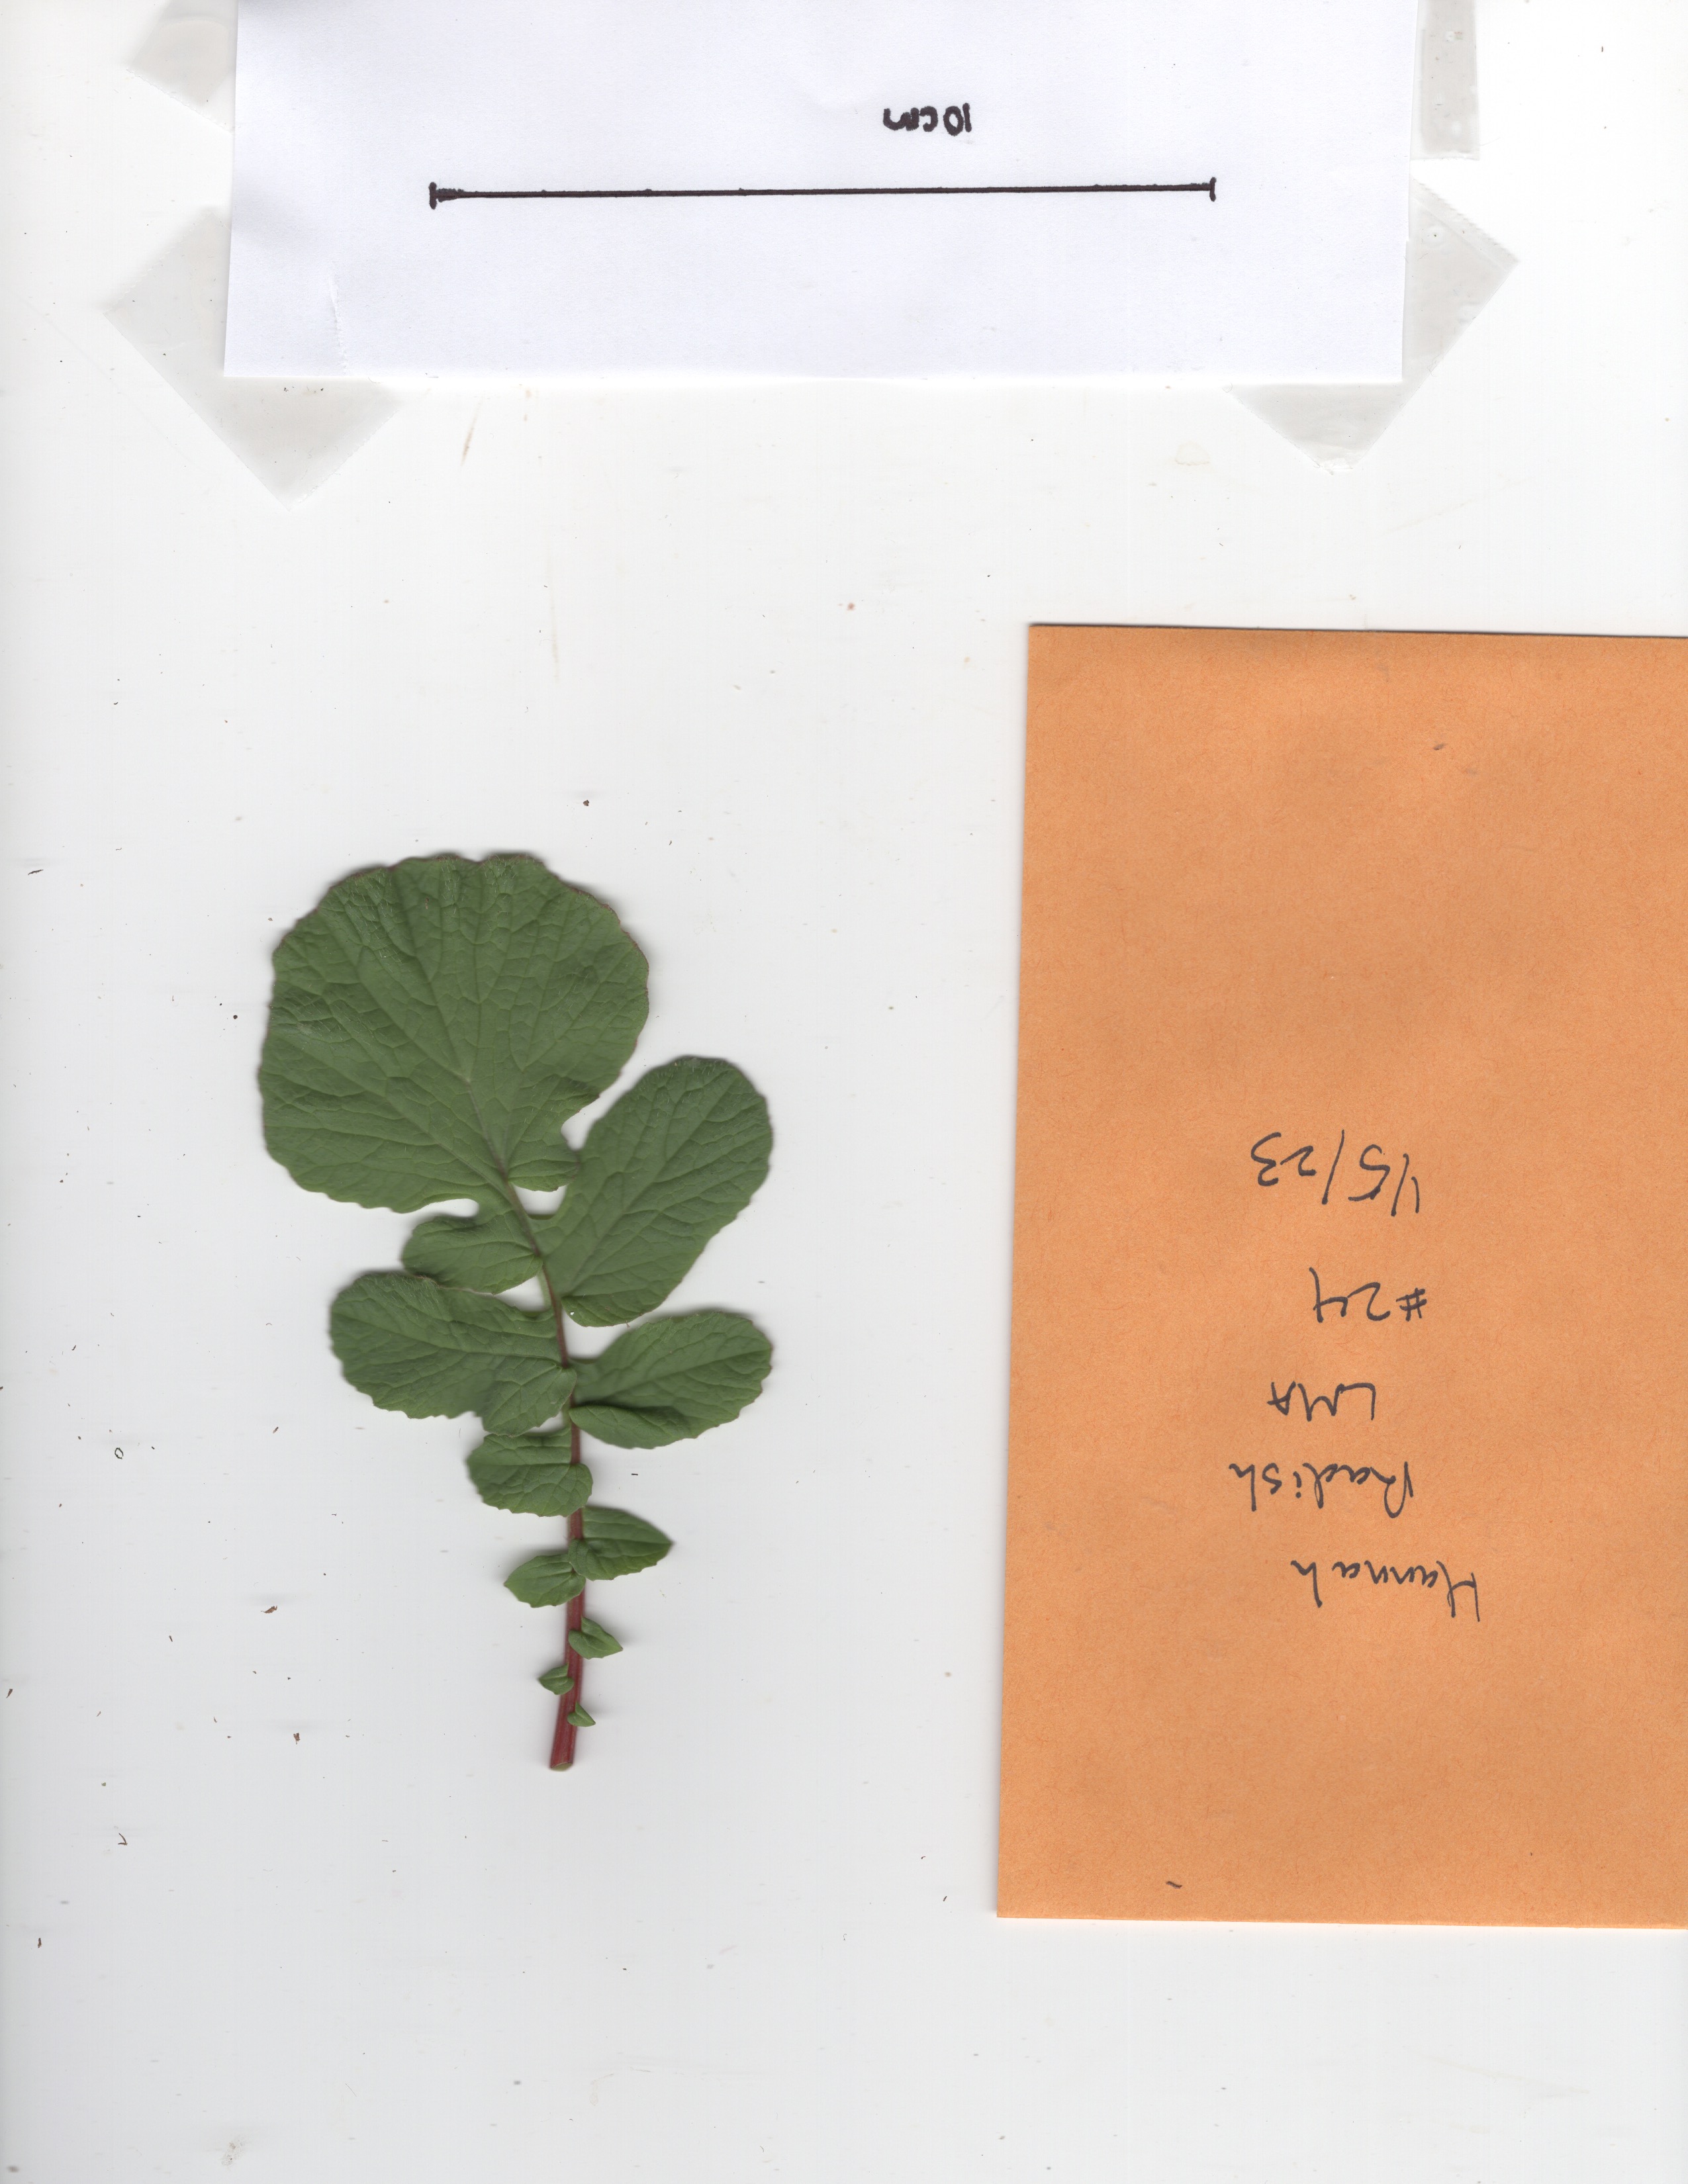 10cm
Hannah
Radish
LMA
#24
1/5/23